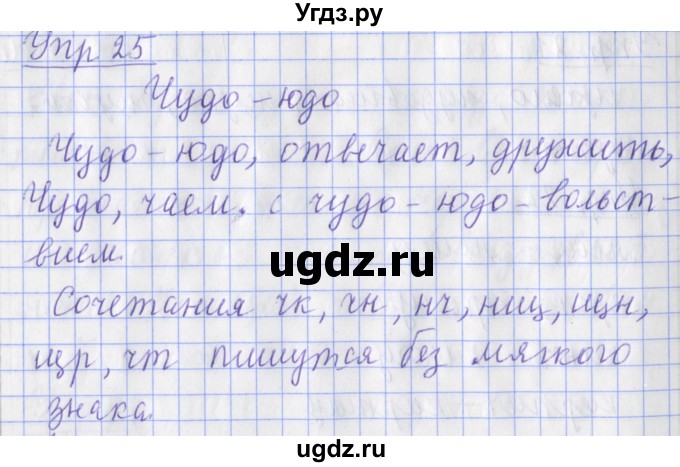 Угдз.ру
Упр 25
Чудо-юдо
Чудо-юдо, отвечает, дружить,
Чудо, чаем, с чудо-юдо-вольст-
вием.
ugdz.ru
Сочетания чк, чн, нч, нщ, щн,
щр, чт пишутся без мягкого
знака.
ugdz.ru